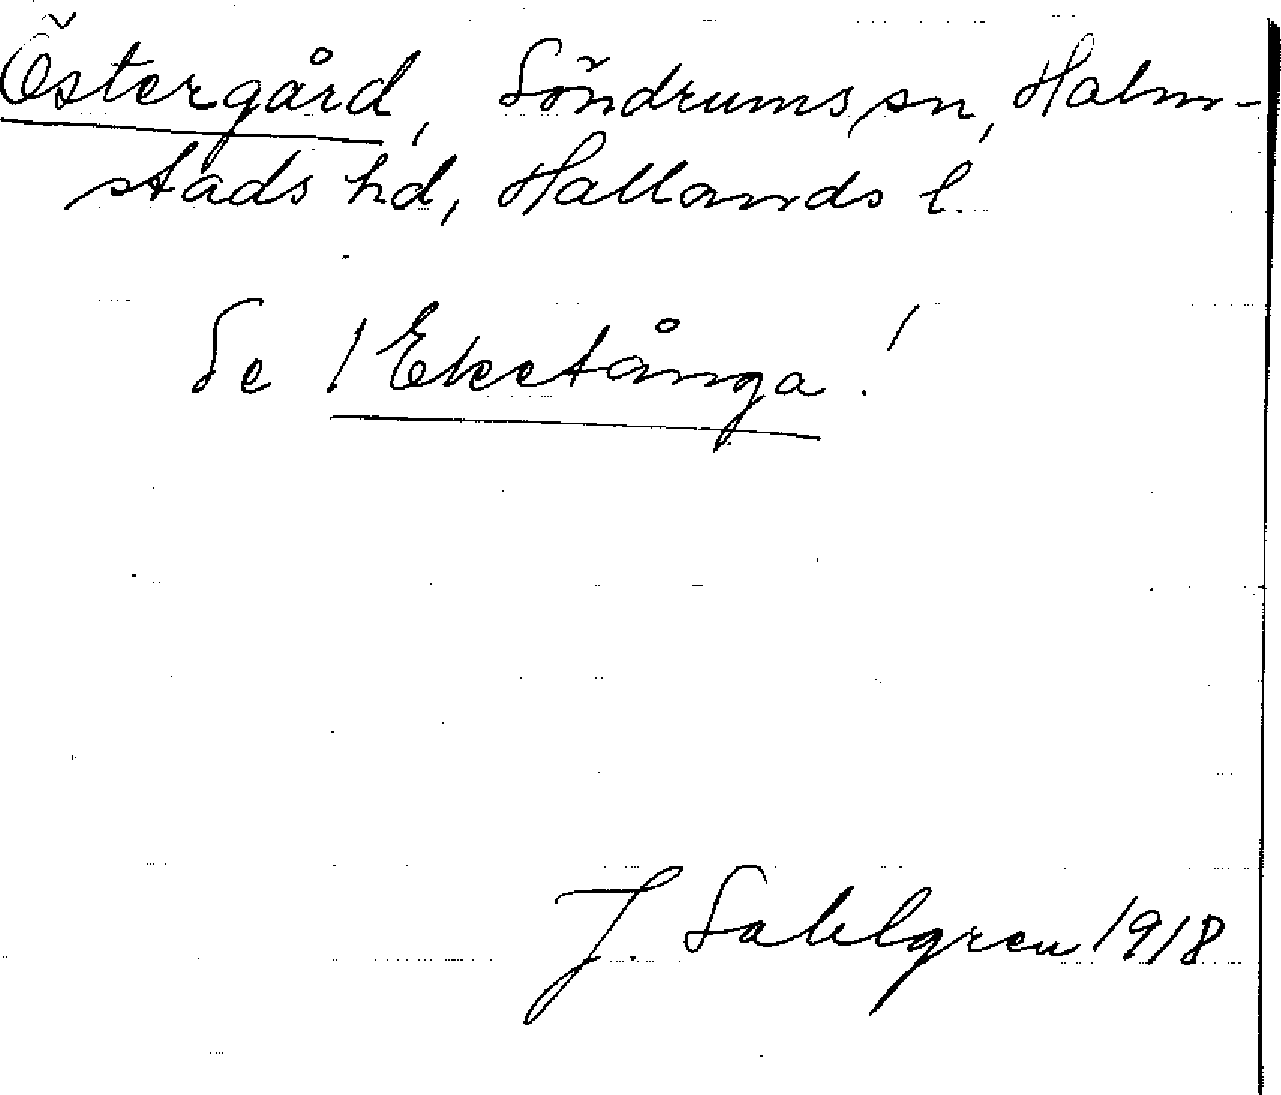 Östergård, Söndrums sn, Halm-
stads hd, Hallands l
Se 1 Eketånga!
J. Sahlgren 1918